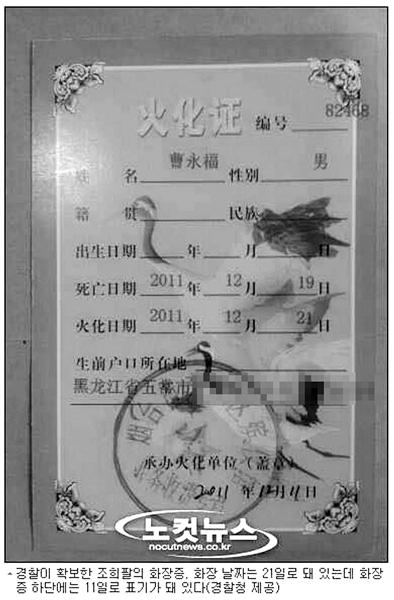 火化证 编号 82468
姓名 曹永福 性别 男
籍贯 民族
出生日期 年 月 日
死亡日期 2011 年 12 月 19 日
火化日期 2011 年 12 月 21 日
生前户口所在地
黑龙江省五常市
承办火化单位（盖章）
2011 年 12 月 11 日
노컷뉴스
nocutnews.co.kr
경찰이 확보한 조희팔의 화장증. 화장 날짜는 21일로 돼 있는데 화장
증 하단에는 11일로 표기가 돼 있다(경찰청 제공)